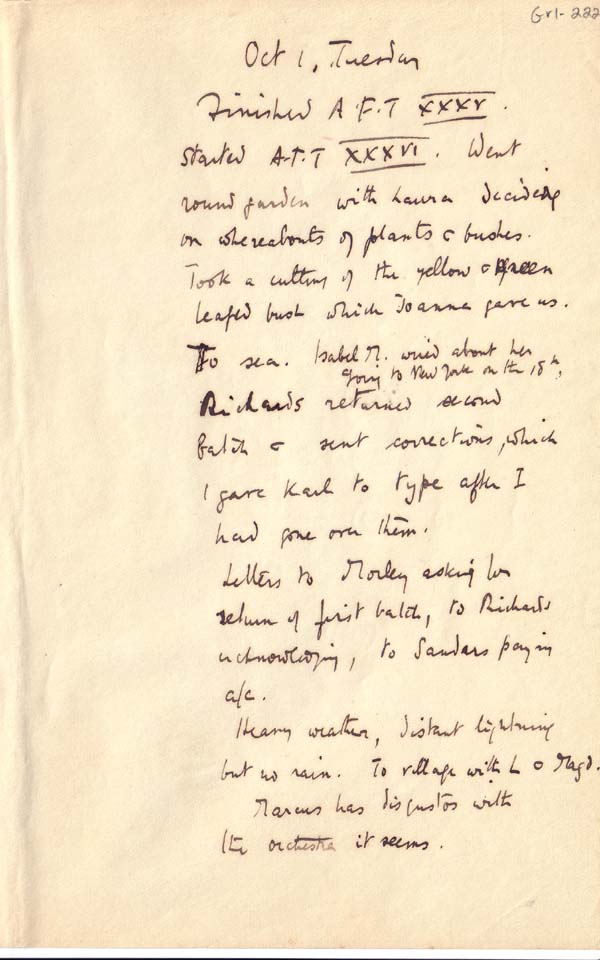 Gr1-222
Oct 1, Tuesday
Finished A.F.T XXXV.
Started A.F.T XXXVI. Went
round garden with Laura deciding
on whereabouts of plants & bushes.
Took a cutting of the yellow & green
leafed bush which Joanna gave us.
To sea. Isabel M. wired about her
going to New York on the 18th,
Richards returned second
batch & sent corrections, which
I gave Karl to type after I
had gone over them.
Letters to Morley asking for
return of first batch, to Richards
acknowledging, to Sanders paying
a/c.
Heavy weather, distant lightning
but no rain. To village with L & Magd.
Marcus has disgustos with
the orchestra it seems.